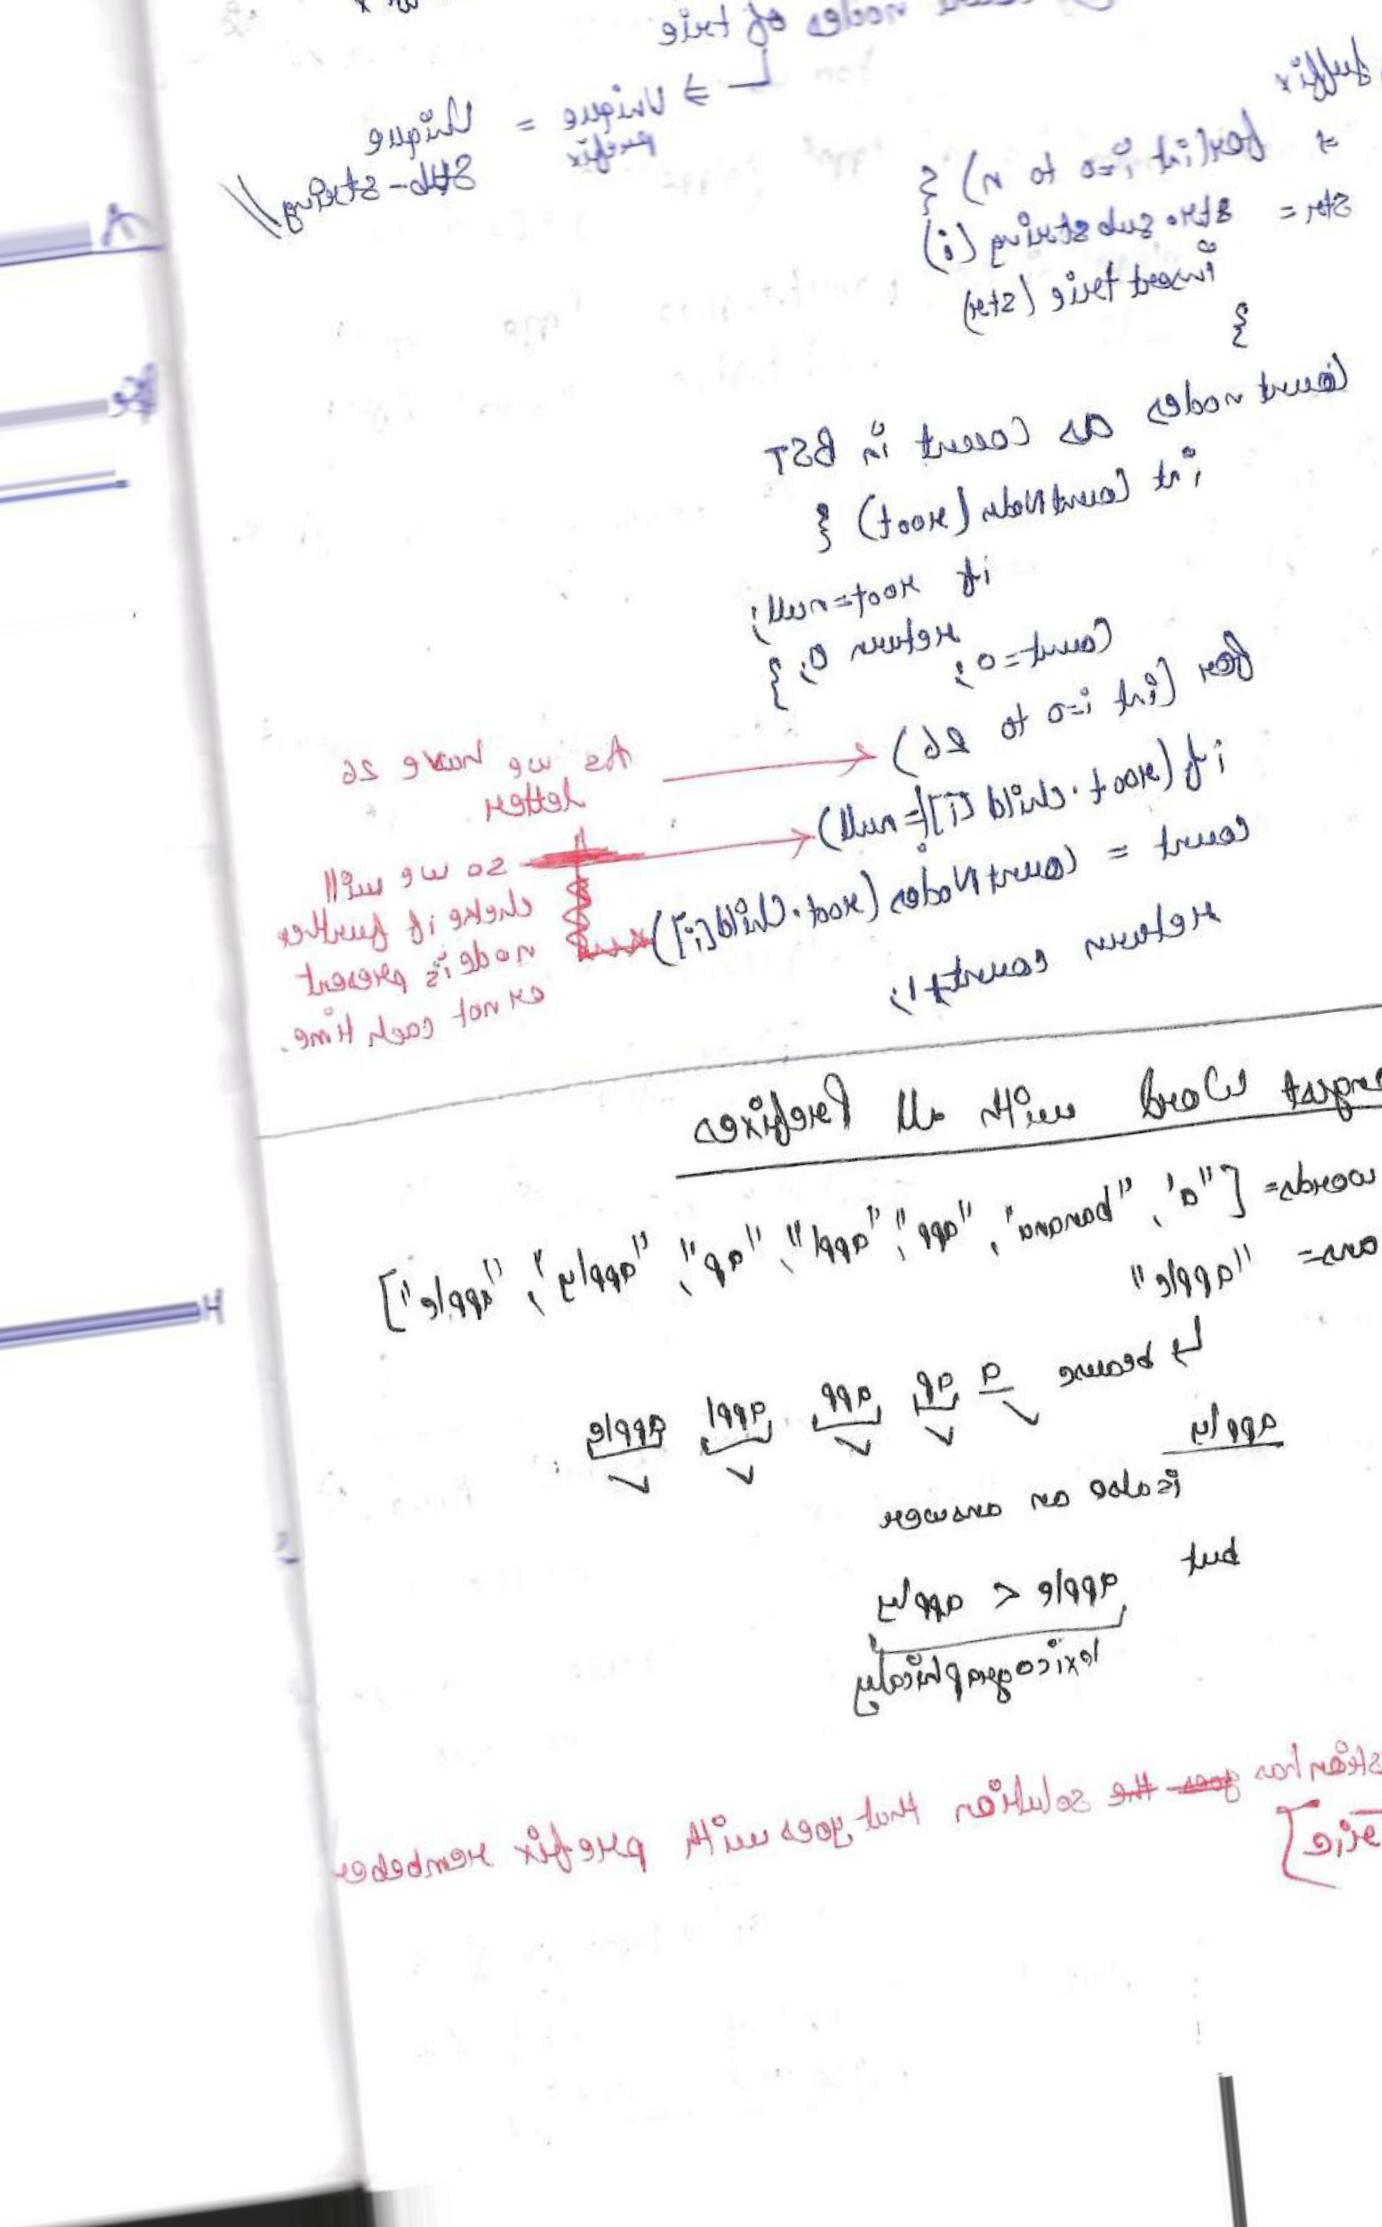 nodes of trie
⇒ Unique prefix = Unique Sub-string //
Suffix
⇒ for(int i=0 to n) {
Str = str.substring(i)
insert trie (str)
}
Count nodes as Count in BST
int CountNode (root) {
if root=null;
return 0; }
Count=0;
for (int i=0 to 26)
As we have 26
letter
if (root.child[i]!=null)
so we will
cheke if further
node is present
or not each time.
count = CountNodes (root.Child[i])
return count+1;
Word with all Prefixes
words= ["a", "banana", "app", "appl", "ap", "apply", "apple"]
ans= "apple"
↳ because a ap app appl apple
apply
is also an answer
but
apple < apply
lexicographicaly
has goes the solution that goes with prefix remember